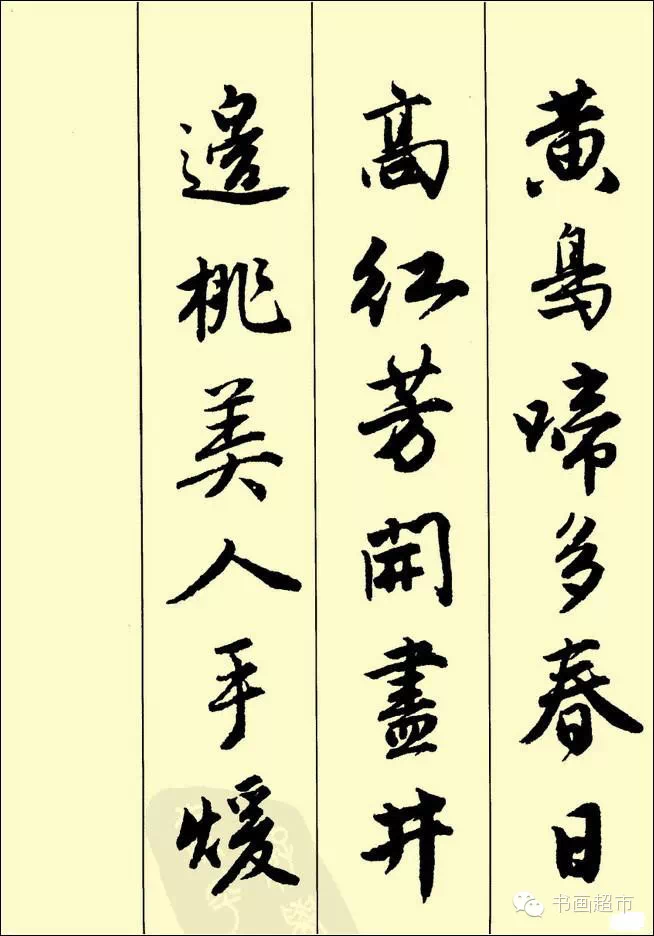 黄鳥啼多春日
高红芳開盡井
邊桃美人手煖
书画超市